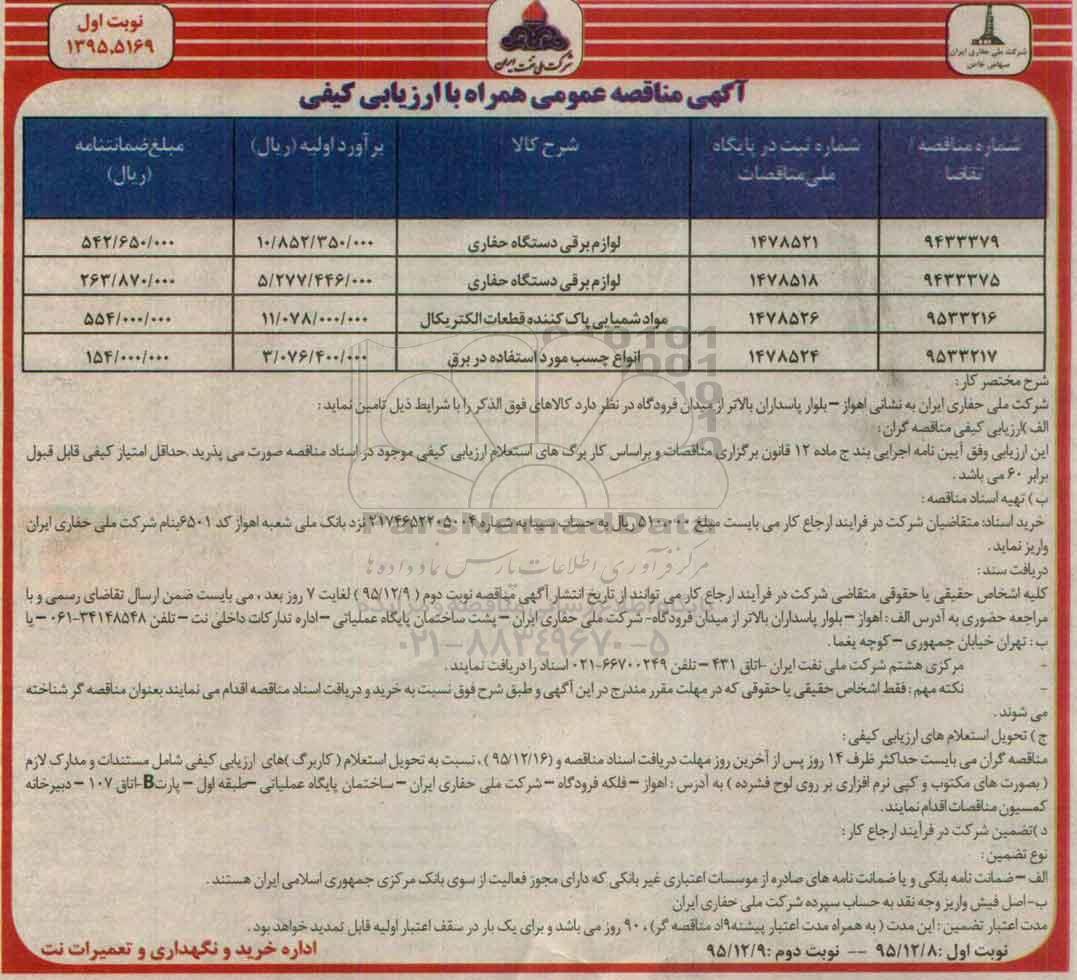 شرکت ملی حفاری ایران
سهامی خاص
شرکت ملی نفت ایران
نوبت اول
۱۳۹۵.۵۱۶۹
آگهی مناقصه عمومی همراه با ارزیابی کیفی
شماره مناقصه / تقاضا	شماره ثبت در پایگاه ملی مناقصات	شرح کالا	برآورد اولیه (ریال)	مبلغ ضمانتنامه (ریال)
۹۴۳۳۳۷۹	۱۴۷۸۵۲۱	لوازم برقی دستگاه حفاری	۱۰/۸۵۲/۳۵۰/۰۰۰	۵۴۲/۶۵۰/۰۰۰
۹۴۳۳۳۷۵	۱۴۷۸۵۱۸	لوازم برقی دستگاه حفاری	۵/۲۷۷/۴۴۶/۰۰۰	۲۶۳/۸۷۰/۰۰۰
۹۵۳۳۲۱۶	۱۴۷۸۵۲۶	مواد شمیایی پاک کننده قطعات الکتریکال	۱۱/۰۷۸/۰۰۰/۰۰۰	۵۵۴/۰۰۰/۰۰۰
۹۵۳۳۲۱۷	۱۴۷۸۵۲۴	انواع چسب مورد استفاده در برق	۳/۰۷۶/۴۰۰/۰۰۰	۱۵۴/۰۰۰/۰۰۰
شرح مختصر کار :
شرکت ملی حفاری ایران به نشانی اهواز – بلوار پاسداران بالاتر از میدان فرودگاه در نظر دارد کالاهای فوق الذکر را با شرایط ذیل تامین نماید :
الف )ارزیابی کیفی مناقصه گران :
این ارزیابی وفق آیین نامه اجرایی بند ج ماده ۱۲ قانون برگزاری مناقصات و براساس کار برگ های استعلام ارزیابی کیفی موجود در اسناد مناقصه صورت می پذیرد .حداقل امتیاز کیفی قابل قبول
برابر ۶۰ می باشد .
ب ) تهیه اسناد مناقصه :
خرید اسناد: متقاضیان شرکت در فرایند ارجاع کار می بایست مبلغ ۵۱۰،۰۰۰ ریال به حساب سیبا به شماره ۲۱۷۴۶۵۲۲۰۵۰۰۴ نزد بانک ملی شعبه اهواز کد ۶۵۰۱بنام شرکت ملی حفاری ایران
واریز نماید .
دریافت سند :
کلیه اشخاص حقیقی یا حقوقی متقاضی شرکت در فرآیند ارجاع کار می توانند از تاریخ انتشار آگهی مناقصه نوبت دوم ( ۹۵/۱۲/۹ ) لغایت ۷ روز بعد ، می بایست ضمن ارسال تقاضای رسمی و با
مراجعه حضوری به آدرس الف : اهواز – بلوار پاسداران بالاتر از میدان فرودگاه- شرکت ملی حفاری ایران – پشت ساختمان پایگاه عملیاتی –اداره تدارکات داخلی نت – تلفن ۳۴۱۴۸۵۴۸-۰۶۱ – یا
ب : تهران خیابان جمهوری – کوچه یغما .
- مرکزی هشتم شرکت ملی نفت ایران -اتاق ۴۳۱ – تلفن ۶۶۷۰۰۲۴۹-۰۲۱ اسناد را دریافت نمایند .
- نکته مهم : فقط اشخاص حقیقی یا حقوقی که در مهلت مقرر مندرج در این آگهی و طبق شرح فوق نسبت به خرید و دریافت اسناد مناقصه اقدام می نمایند بعنوان مناقصه گر شناخته
می شوند .
ج ) تحویل استعلام های ارزیابی کیفی :
مناقصه گران می بایست حداکثر ظرف ۱۴ روز پس از آخرین روز مهلت دریافت اسناد مناقصه و (۹۵/۱۲/۱۶ ) ، نسبت به تحویل استعلام ( کاربرگ )های ارزیابی کیفی شامل مستندات و مدارک لازم
( بصورت های مکتوب و کپی نرم افزاری بر روی لوح فشرده ) به آدرس : اهواز – فلکه فرودگاه – شرکت ملی حفاری ایران – ساختمان پایگاه عملیاتی –طبقه اول – پارتB-اتاق ۱۰۷ – دبیرخانه
کمسیون مناقصات اقدام نمایند .
د )تضمین شرکت در فرآیند ارجاع کار :
نوع تضمین :
الف – ضمانت نامه بانکی و یا ضمانت نامه های صادره از موسسات اعتباری غیر بانکی که دارای مجوز فعالیت از سوی بانک مرکزی جمهوری اسلامی ایران هستند .
ب-اصل فیش واریز وجه نقد به حساب سپرده شرکت ملی حفاری ایران
مدت اعتبار تضمین : این مدت ( به همراه مدت اعتبار پیشنه۹اد مناقصه گر) ، ۹۰ روز می باشد و برای یک بار در سقف اعتبار اولیه قابل تمدید خواهد بود .
نوبت اول :۹۵/۱۲/۸ -- نوبت دوم :۹۵/۱۲/۹
اداره خرید و نگهداری و تعمیرات نت
ParsNamadData
مرکز فرآوری اطلاعات پارس نماد داده ها
۰۲۱-۸۸۳۴۹۶۷۰-۵